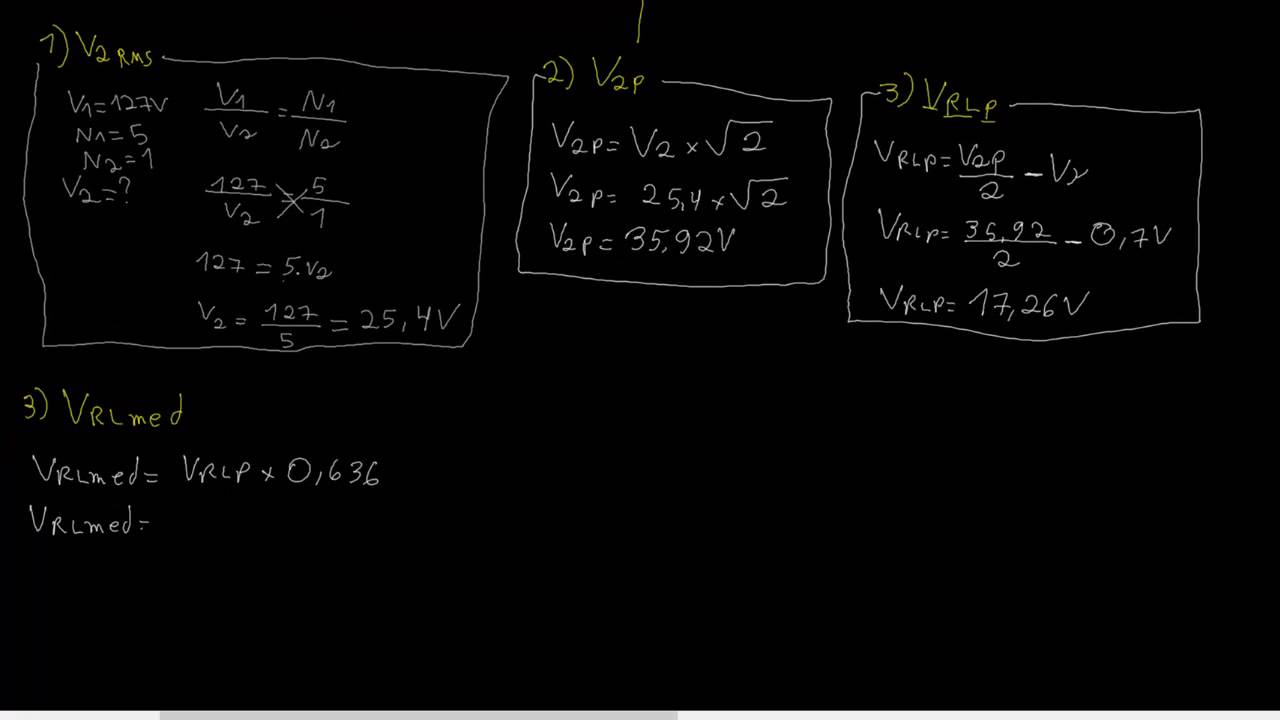 1) V2 RMS
V1=127V
N1=5
N2=1
V2=?
V1/V2 = N1/N2
127/V2 = 5/1
127 = 5.V2
V2 = 127/5 = 25,4V
2) V2P
V2P= V2 × √2
V2P= 25,4 × √2
V2P= 35,92V
3) VRLP
VRLP= V2P/2 - Vγ
VRLP= 35,92/2 - 0,7V
VRLP= 17,26V
3) VRLmed
VRLmed= VRLP × 0,636
VRLmed=